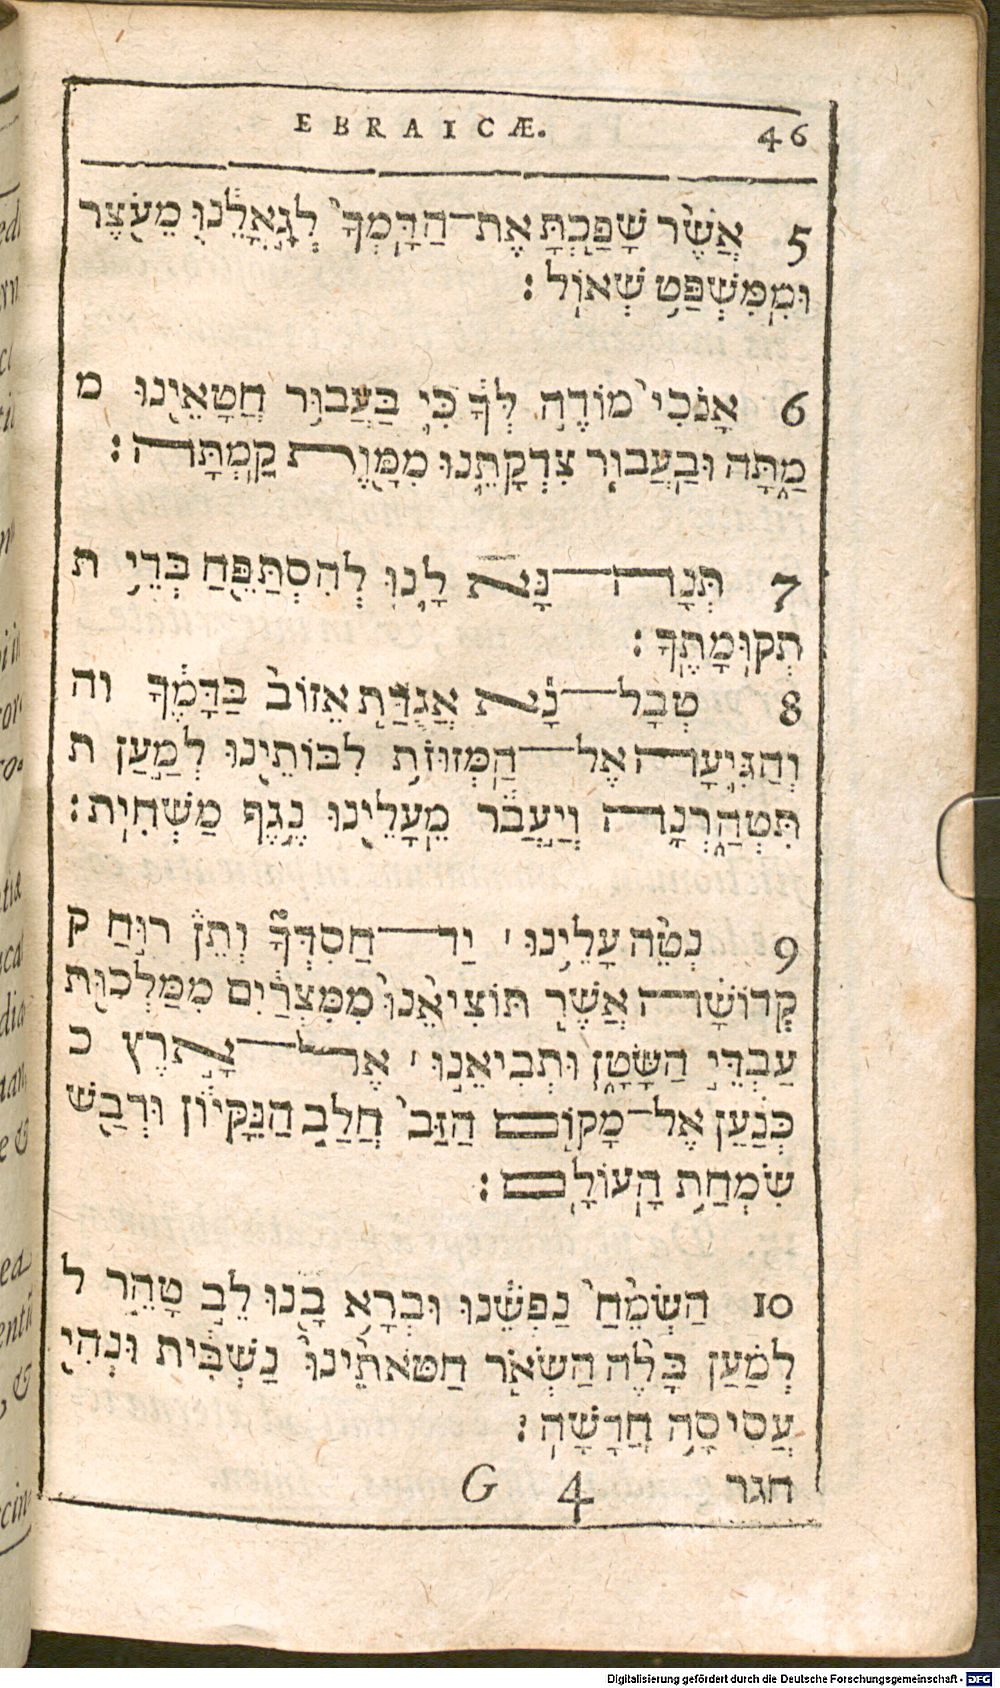 EBRAICÆ. 46
5 אֲשֶׁר שָׁפַכְתָּ אֶת־הַדָּמְךָ לְגָאֳלֵנוּ מֵעֹצֶר
וּמִמִּשְׁפַּט שְׁאוֹל׃
6 אָנֹכִי מוֹדֶה לְךָ כִּי בַּעֲבוּר חֲטָאֵינוּ מ
מַתָּה וּבַעֲבוּר צִדְקָתֵנוּ מִמָּוֶת קַמְתָּה׃
7 תְּנָה־נָּא לָנוּ לְהִסְתַּפֵּחַ בְּדֵי ת
תְקוּמָתֶךָ׃
8 טְבָל־נָא אֲגֻדַּת אֵזוֹב בַּדָּמֶךָ וה
וְהַגִּיעָה אֶל־הַמְּזוּזֹת לִבּוֹתֵינוּ לְמַעַן ת
תִּטְהַרְנָה וְיַעֲבֹר מֵעָלֵינוּ נֶגֶף מַשְׁחִית׃
9 נְטֵה עָלֵינוּ יַד־חַסְדְּךָ וְתֵן רוּחַ ק
קְדוֹשָׁה אֲשֶׁר תּוֹצִיאֵנוּ מִמִּצְרַיִם מִמַּלְכוּת
עַבְדֵי הַשָּׂטָן וּתְבִיאֵנוּ אֶל־אָרֶץ כ
כְּנַעַן אֶל־מָקוֹם הַזַּב חֲלַב הַנִּקָּיוֹן וּדְבַשׁ
שִׂמְחַת הָעוֹלָם׃
10 הַשְׂמֵּחַ נַפְשֵׁנוּ וּבְרָא בָנוּ לֵב טָהֵר ל
לְמַעַן בָּלֶה הַשְׂאֹר חַטֹּאתֵינוּ נַשְׁבִּית וּנְהִי
עֲסִיסָה חֲדָשָׁה׃
G 4 חגר